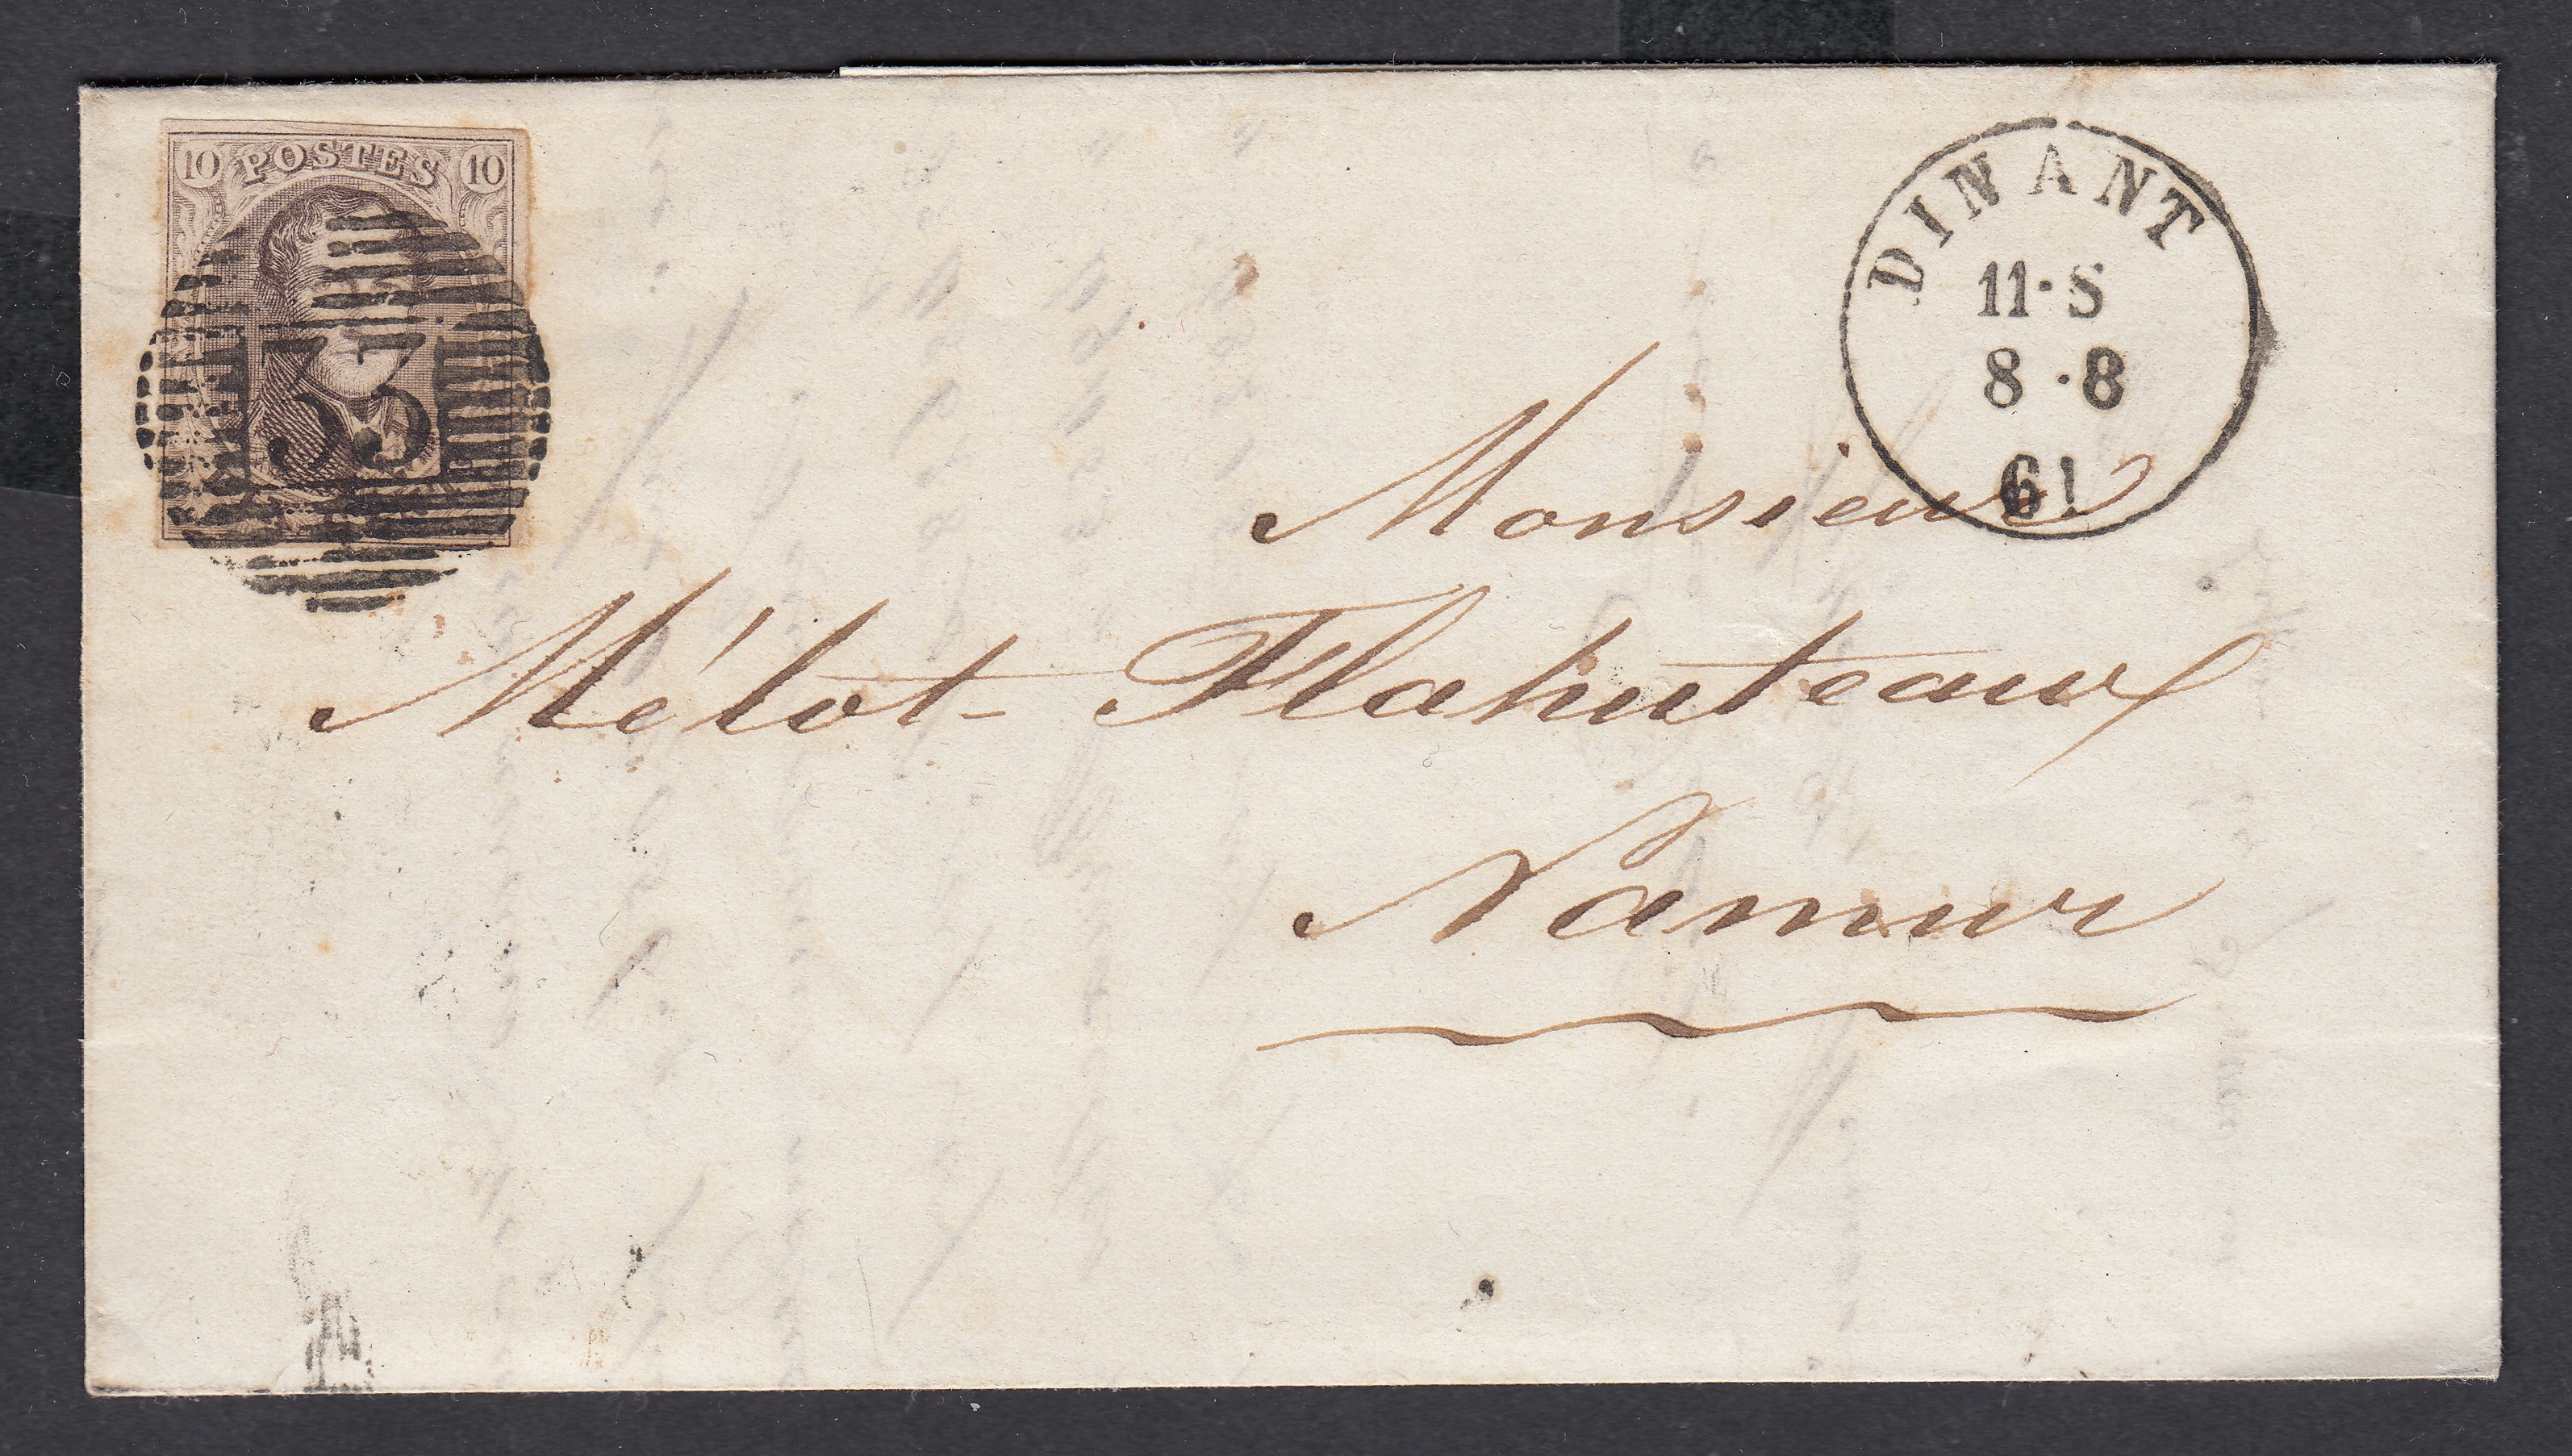 10 POSTES 10
33
DINANT
11·S
8·8
61
Monsieur
Mélot-Flahuteaux
Namur